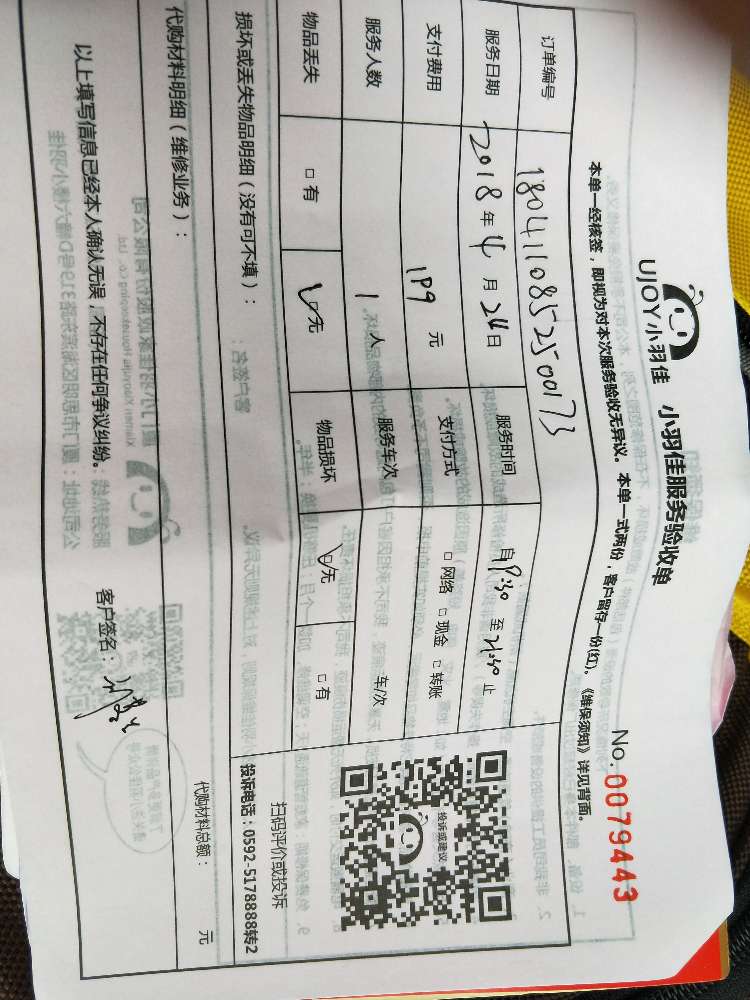 UJOY小羽佳 小羽佳服务验收单
No.0079443
本单一经核签，即视为对本次服务验收无异议。本单一式两份，客户留存一份(红)。《维保须知》详见背面。
订单编号 1804110852500173
服务日期 2018年4月24日 服务时间 自 至 止
支付费用 199元 支付方式 □网络 □现金 □转账
服务人数 1人 服务车次 车/次
物品丢失 □有 □无 物品损坏 □无 □有
投诉或建议
扫码评价或投诉
投诉电话：0592-5178888转2
损坏或丢失物品明细（没有可不填）：
代购材料明细（维修业务）：
代购材料总额： 元
以上填写信息已经本人确认无误，不存在任何争议纠纷。 客户签名：